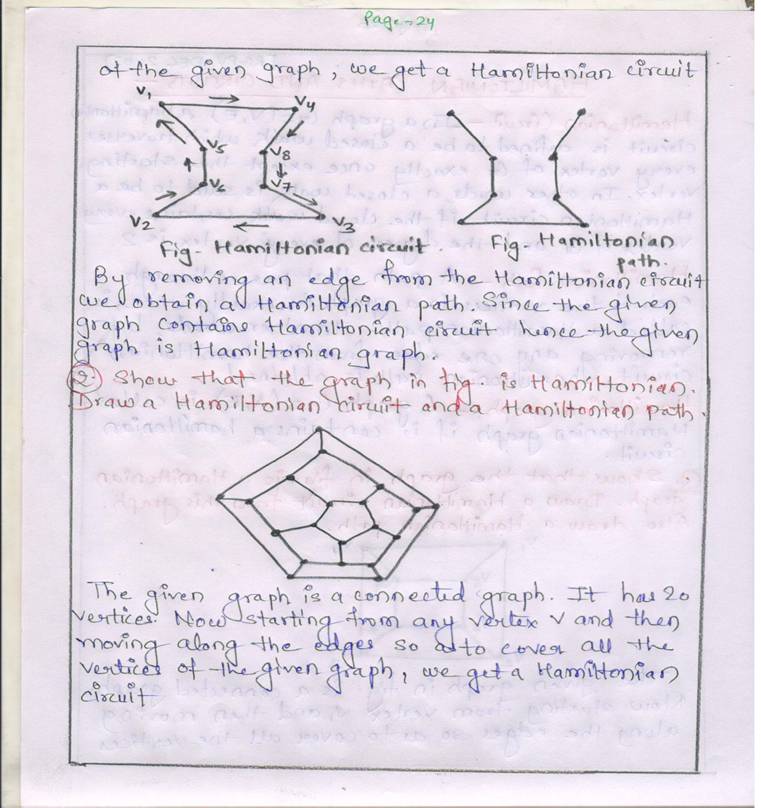 Page-24
of the given graph, we get a Hamiltonian circuit
V1 V4
V5 V8
V6 V7
V2 V3
Fig- Hamiltonian circuit. Fig- Hamiltonian
path.
By removing an edge from the Hamiltonian circuit
we obtain a Hamiltonian path. Since the given
graph contains Hamiltonian circuit hence the given
graph is Hamiltonian graph.
2) Show that the graph in fig is Hamiltonian.
Draw a Hamiltonian circuit and a Hamiltonian path.
The given graph is a connected graph. It has 20
vertices. Now starting from any vertex v and then
moving along the edges so as to cover all the
vertices of the given graph, we get a Hamiltonian
circuit